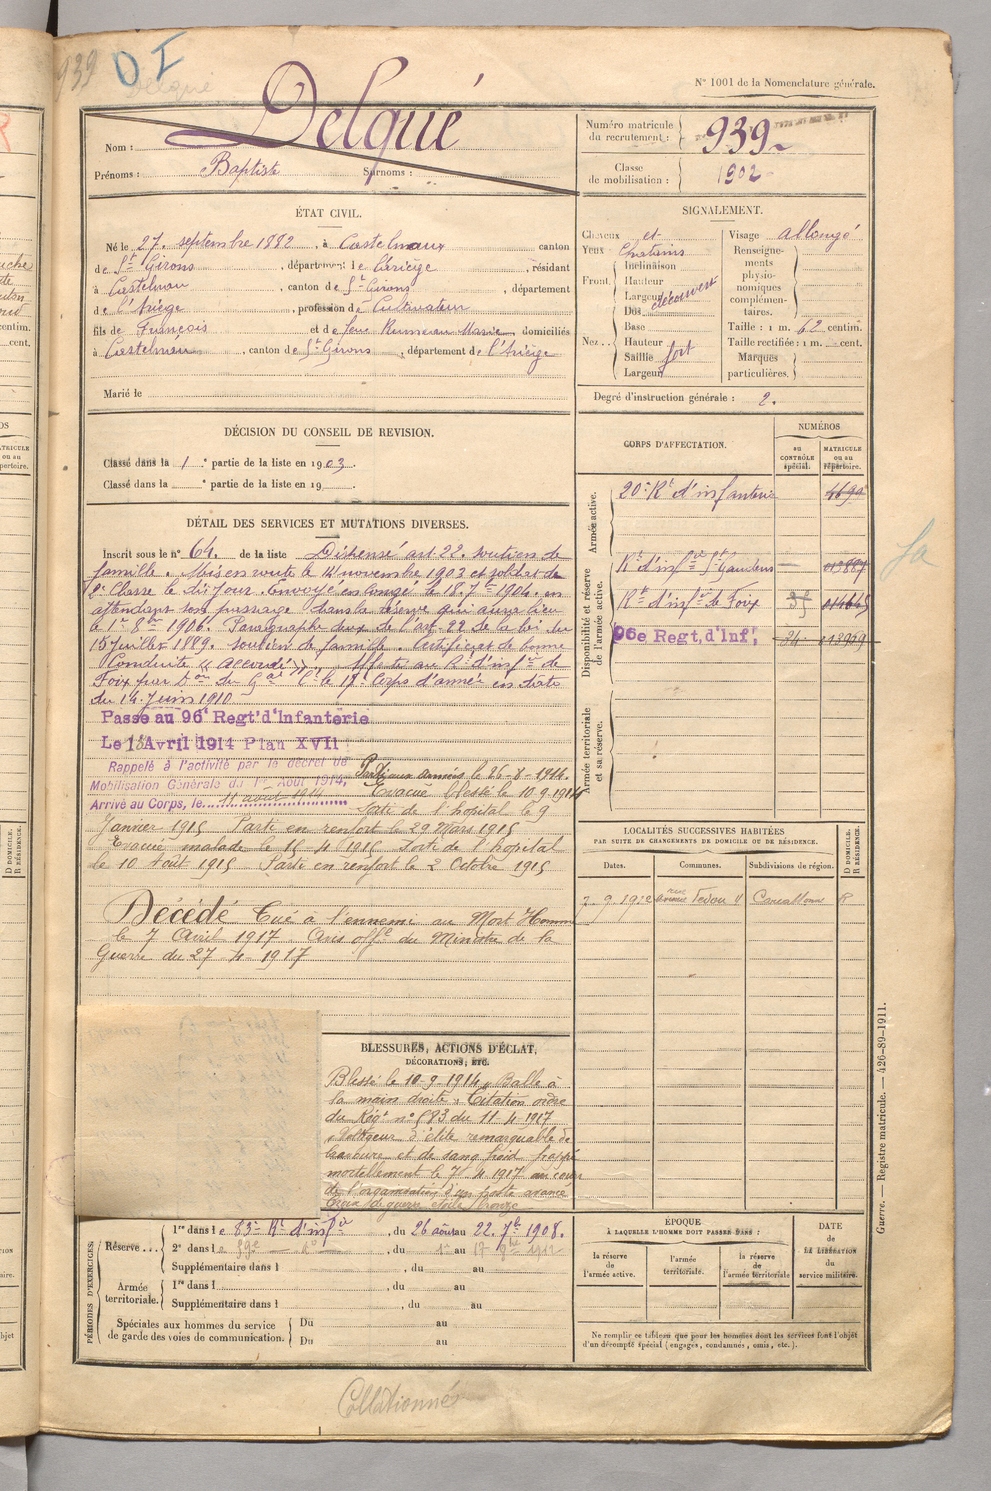 939
D I
Delqué
N° 1001 de la Nomenclature générale.
Nom : Delqué
Prénoms : Baptiste Surnoms :
Numéro matricule du recrutement : 939
Classe de mobilisation : 1902
ÉTAT CIVIL.
Né le 27 septembre 1882, à Castelnau canton
de St Girons, département de l'ariège, résidant
à Castelnau, canton de St Girons, département
de l'Ariège, profession de Cultivateur
fils de François et de feue Rumeau Marie, domiciliés
à Castelnau, canton de St Girons, département de l'Ariège
Marié le
SIGNALEMENT.
Cheveux et
Yeux Chatains
Front Inclinaison
Hauteur
Largeur découvert
Nez Dos
Base
Hauteur
Saillie fort
Largeur
Visage allongé
Renseignements physionomiques complémentaires.
Taille : 1 m. 62 centim.
Taille rectifiée : 1 m. cent.
Marques particulières.
Degré d'instruction générale : 2.
DÉCISION DU CONSEIL DE REVISION.
Classé dans la 1re partie de la liste en 1903.
Classé dans la e partie de la liste en 19
DÉTAIL DES SERVICES ET MUTATIONS DIVERSES.
Inscrit sous le n° 64. de la liste Dispensé art. 22. soutien de
famille. Mis en route le 14 novembre 1903 et soldat de
2e Classe le dit jour. Envoyé en congé le 18. 7bre 1904. en
attendant son passage dans la réserve qui aura lieu
le 1er 8bre 1906. Paragraphe deux de l'art. 22 de la loi du
15 juillet 1889. soutien de famille. Certificat de bonne
Conduite « accordé ». Affecté au Rt d'infie de
Foix par Don du Gal Ct le 17e Corps d'armée en date
du 14 Juin 1910
Passé au 96e Regt d'Infanterie
Le 1er Avril 1914 Plan XVII
Rappelé à l'activité par le décret de
Mobilisation Générale du 1er Août 1914,
Arrivé au Corps, le 11 août 1914
Parti aux armées le 26-8-1914.
Evacué blessé le 10-9-1914
Sorti de l'hopital le 9
Janvier 1915 Parti en renfort le 29 Mars 1915
Evacué malade le 15-4-1915 Sorti de l'hopital
le 10 Août 1915 Parti en renfort le 2 Octobre 1915
Décédé Tué à l'ennemi au Mort Homme
le 7 Avril 1917. Avis offel du Ministre de la
Guerre du 27-4-1917
CORPS D'AFFECTATION.
NUMÉROS
au CONTRÔLE spécial.
MATRICULE ou au répertoire.
Armée active.
20e Rt d'infanterie 4699
Disponibilité et réserve de l'armée active.
Rt d'infie St Gaudens — 013887
Rt d'infie de Foix
96e Regt, d'Inf,
Armée territoriale et sa réserve.
LOCALITÉS SUCCESSIVES HABITÉES
PAR SUITE DE CHANGEMENTS DE DOMICILE OU DE RÉSIDENCE.
Dates.
Communes.
Subdivisions de région.
D DOMICILE. R RÉSIDENCE.
R
BLESSURES, ACTIONS D'ÉCLAT,
DÉCORATIONS, ETC.
Blessé le 10-9-1914 „ Balle à
la main droite. Citation ordre
du Régt n° 583 du 11-4-1917
„ Voltigeur d'élite remarquable de
bravoure et de sang froid frappé
mortellement le 7 4 1917 au cours
de l'organisation d'un poste avancé
Croix de guerre, étoile bronze
PÉRIODES D'EXERCICES.
Réserve 1re dans le 83e Rt d'infie, du 26 août au 22. 7bre 1908.
2e dans le
Supplémentaire dans l , du au
Armée territoriale. 1re dans l , du au
Supplémentaire dans l , du au
Spéciales aux hommes du service de garde des voies de communication. Du au
Du au
ÉPOQUE
À LAQUELLE L'HOMME DOIT PASSER DANS :
la réserve de l'armée active.
l'armée territoriale.
la réserve de l'armée territoriale
DATE de LA LIBÉRATION du service militaire.
Ne remplir ce tableau que pour les hommes dont les services font l'objet
d'un décompte spécial (engagés, condamnés, omis, etc.).
Guerre. — Registre matricule. — 426-89-1911.
Collationné